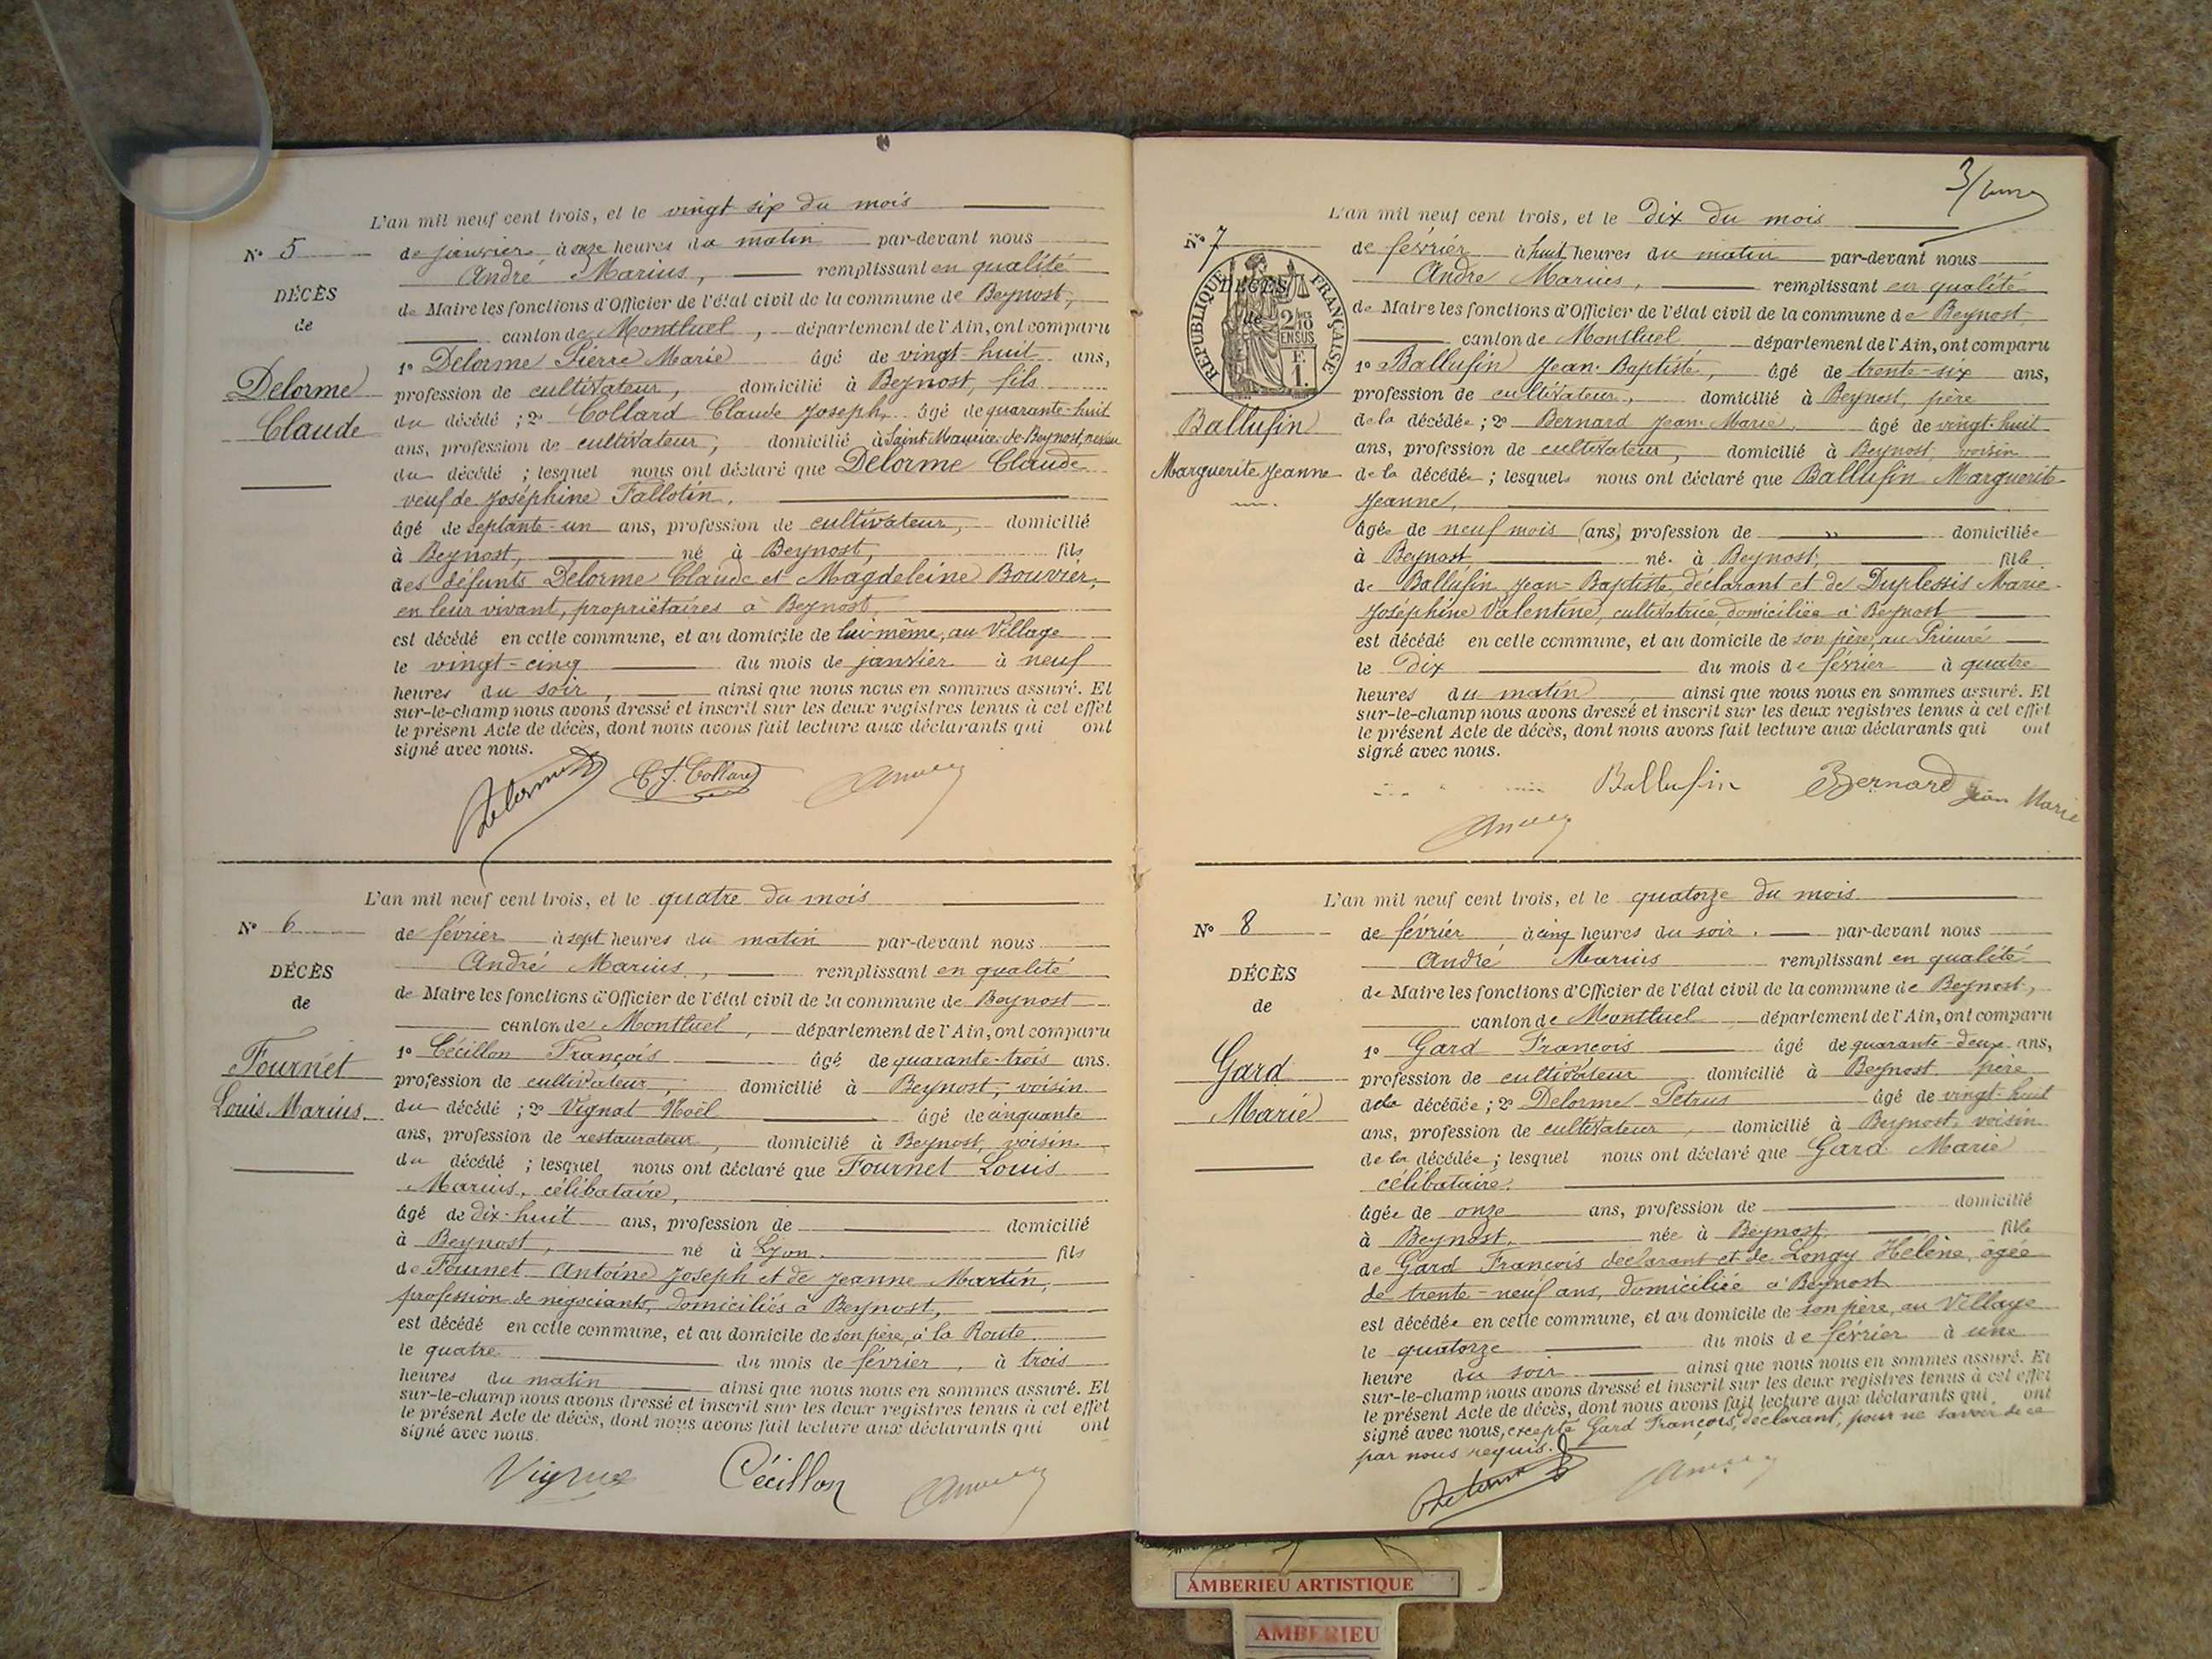 L'an mil neuf cent trois, et le vingt six du mois
N° 5
de janvier à onze heures du matin par-devant nous
André Marius, remplissant en qualité
DÉCÈS
de
de Maire les fonctions d'Officier de l'état civil de la commune de Beynost,
canton de Montluel, département de l'Ain, ont comparu
1° Delorme Pierre Marie âgé de vingt-huit ans,
Delorme
Claude
profession de cultivateur, domicilié à Beynost, fils
du décédé ; 2° Collard Claude Joseph, âgé de quarante-huit
ans, profession de cultivateur, domicilié à Saint-Maurice-de-Beynost, neveu
du décédé ; lesquel nous ont déclaré que Delorme Claude
veuf de Joséphine Fallotin,
âgé de septante-un ans, profession de cultivateur, domicilié
à Beynost, né à Beynost, fils
des défunts Delorme Claude et Magdeleine Bouvier,
en leur vivant, propriétaires à Beynost,
est décédé en cette commune, et au domicile de lui-même, au Village
le vingt-cinq du mois de janvier à neuf
heures du soir, ainsi que nous nous en sommes assuré. Et
sur-le-champ nous avons dressé et inscrit sur les deux registres tenus à cet effet
le présent Acte de décès, dont nous avons fait lecture aux déclarants qui ont
signé avec nous.
Delorme C. J. Collard
L'an mil neuf cent trois, et le quatre du mois
N° 6
de février à sept heures du matin par-devant nous
André Marius, remplissant en qualité
DÉCÈS
de
de Maire les fonctions d'Officier de l'état civil de la commune de Beynost
canton de Montluel, département de l'Ain, ont comparu
1° Cécillon François âgé de quarante-trois ans.
Fournet
Louis Marius
profession de cultivateur, domicilié à Beynost, voisin
du décédé ; 2° Vignat Noël âgé de cinquante
ans, profession de restaurateur, domicilié à Beynost, voisin
du décédé ; lesquel nous ont déclaré que Fournet Louis
Marius, célibataire,
âgé de dix-huit ans, profession de domicilié
à Beynost, né à Lyon. fils
de Fournet Antoine Joseph et de Jeanne Martin,
profession de négociants, domiciliés à Beynost,
est décédé en cette commune, et au domicile de son père, à la Route
le quatre du mois de février, à trois
heures du matin ainsi que nous nous en sommes assuré. Et
sur-le-champ nous avons dressé et inscrit sur les deux registres tenus à cet effet
le présent Acte de décès, dont nous avons fait lecture aux déclarants qui ont
signé avec nous.
Cécillon
3/
L'an mil neuf cent trois, et le Dix du mois
N° 7
de février à huit heures du matin par-devant nous
André Marius, remplissant en qualité
DÉCÈS
de
RÉPUBLIQUE FRANÇAISE
2/10 EN SUS
F. 1.
de Maire les fonctions d'Officier de l'état civil de la commune de Beynost
canton de Montluel département de l'Ain, ont comparu
1° Ballufin Jean-Baptiste, âgé de trente-six ans,
Ballufin
Marguerite Jeanne
profession de cultivateur, domicilié à Beynost, père
de la décédée ; 2° Bernard Jean-Marie, âgé de vingt-huit
ans, profession de cultivateur, domicilié à Beynost, voisin
de la décédée ; lesquels nous ont déclaré que Ballufin Marguerite
Jeanne,
âgée de neuf mois (ans) profession de " domiciliée
à Beynost né à Beynost, fille
de Ballufin Jean-Baptiste, déclarant et de Duplessis Marie
Joséphine Valentine, cultivatrice, domiciliée à Beynost
est décédé en cette commune, et au domicile de son père, au Prieuré
le Dix du mois de février à quatre
heures du matin, ainsi que nous nous en sommes assuré. Et
sur-le-champ nous avons dressé et inscrit sur les deux registres tenus à cet effet
le présent Acte de décès, dont nous avons fait lecture aux déclarants qui ont
signé avec nous.
Ballufin Bernard Jean Marie
L'an mil neuf cent trois, et le quatorze du mois
N° 8
de février à cinq heures du soir. par-devant nous
André Marius remplissant en qualité
DÉCÈS
de
de Maire les fonctions d'Officier de l'état civil de la commune de Beynost,
canton de Montluel département de l'Ain, ont comparu
1° Gard François âgé de quarante-deux ans,
Gard
Marie
profession de cultivateur domicilié à Beynost. père
de la décédée ; 2° Delorme Petrus âgé de vingt-huit
ans, profession de cultivateur, domicilié à Beynost, voisin
de la décédée ; lesquel nous ont déclaré que Gard Marie
célibataire.
âgée de onze ans, profession de domicilié
à Beynost, née à Beynost fille
de Gard François déclarant et de Longy Hélène, âgée
de trente-neuf ans, domiciliée à Beynost
est décédée en cette commune, et au domicile de son père, au Village
le quatorze du mois de février à une
heure du soir ainsi que nous nous en sommes assuré. Et
sur-le-champ nous avons dressé et inscrit sur les deux registres tenus à cet effet
le présent Acte de décès, dont nous avons fait lecture aux déclarants qui ont
signé avec nous, excepté Gard François, déclarant, pour ne savoir de ce
par nous requis.
Delorme
AMBERIEU ARTISTIQUE
AMBERIEU